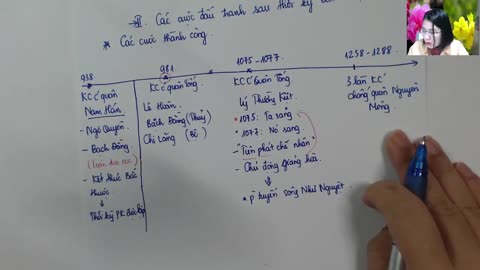 II. Các cuộc đấu tranh sau thời kỳ
* Các cuộc thành công.
938
981
1075-1077
1258-1288
KCC quân
Nam Hán
- Ngô Quyền
- Bạch Đằng
- Kết thúc Bắc
thuộc
→ Thời kỳ PK độc lập
KCC quân Tống
Lê Hoàn
Bạch Đằng (Thuỷ)
Chi Lăng (Bộ)
KCC Quân Tống
Lý Thường Kiệt
* 1075: Ta sang
* 1077: Nó sang
- "Tiên phát chế nhân"
- Chủ động giảng hòa
* p tuyến sông Như Nguyệt
3 lần KC
chống quân Nguyên
Mông.